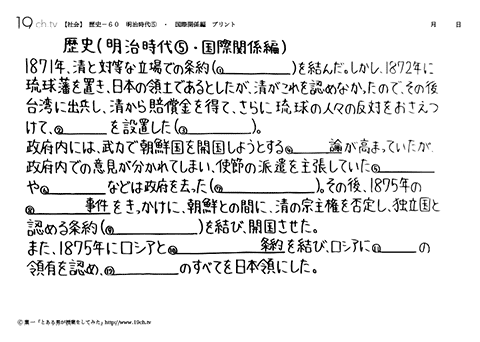 19ch.tv 【社会】 歴史－60 明治時代⑤ ・ 国際関係編 プリント 月 日
歴史(明治時代⑤・国際関係編)
1871年、清と対等な立場での条約(①__________)を結んだ。しかし、1872年に
琉球藩を置き、日本の領土であるとしたが、清がこれを認めなかったので、その後
台湾に出兵し、清から賠償金を得て、さらに琉球の人々の反対をおさえつ
けて、②________を設置した(③__________)。
政府内には、武力で朝鮮国を開国しようとする④________論が高まっていたが、
政府内での意見が分かれてしまい、使節の派遣を主張していた⑤________
や⑥__________などは政府を去った(⑦____________)。その後、1875年の
⑧________事件をきっかけに、朝鮮との間に、清の宗主権を否定し、独立国と
認める条約(⑨____________)を結び、開国させた。
また、1875年にロシアと⑩____________条約を結び、ロシアに⑪______の
領有を認め、⑫________のすべてを日本領にした。
Ⓒ 葉一「とある男が授業をしてみた」http://www.19ch.tv